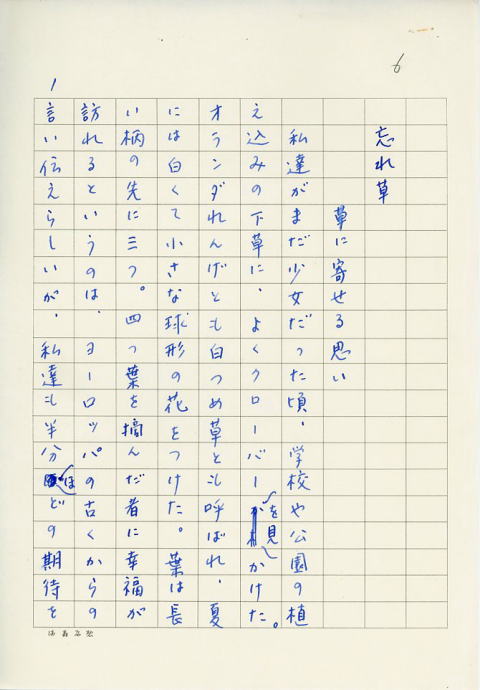 6
1
忘れ草
草に寄せる思い
私達がまだ少女だった頃、学校や公園の植
え込みの下草に、よくクローバーを見かけた。
オランダれんげとも白つめ草とも呼ばれ、夏
には白くて小さな球形の花をつけた。葉は長
い柄の先に三つ。四つ葉を摘んだ者に幸福が
訪れるというのは、ヨーロッパの古くからの
言い伝えらしいが、私達も半分ほどの期待を